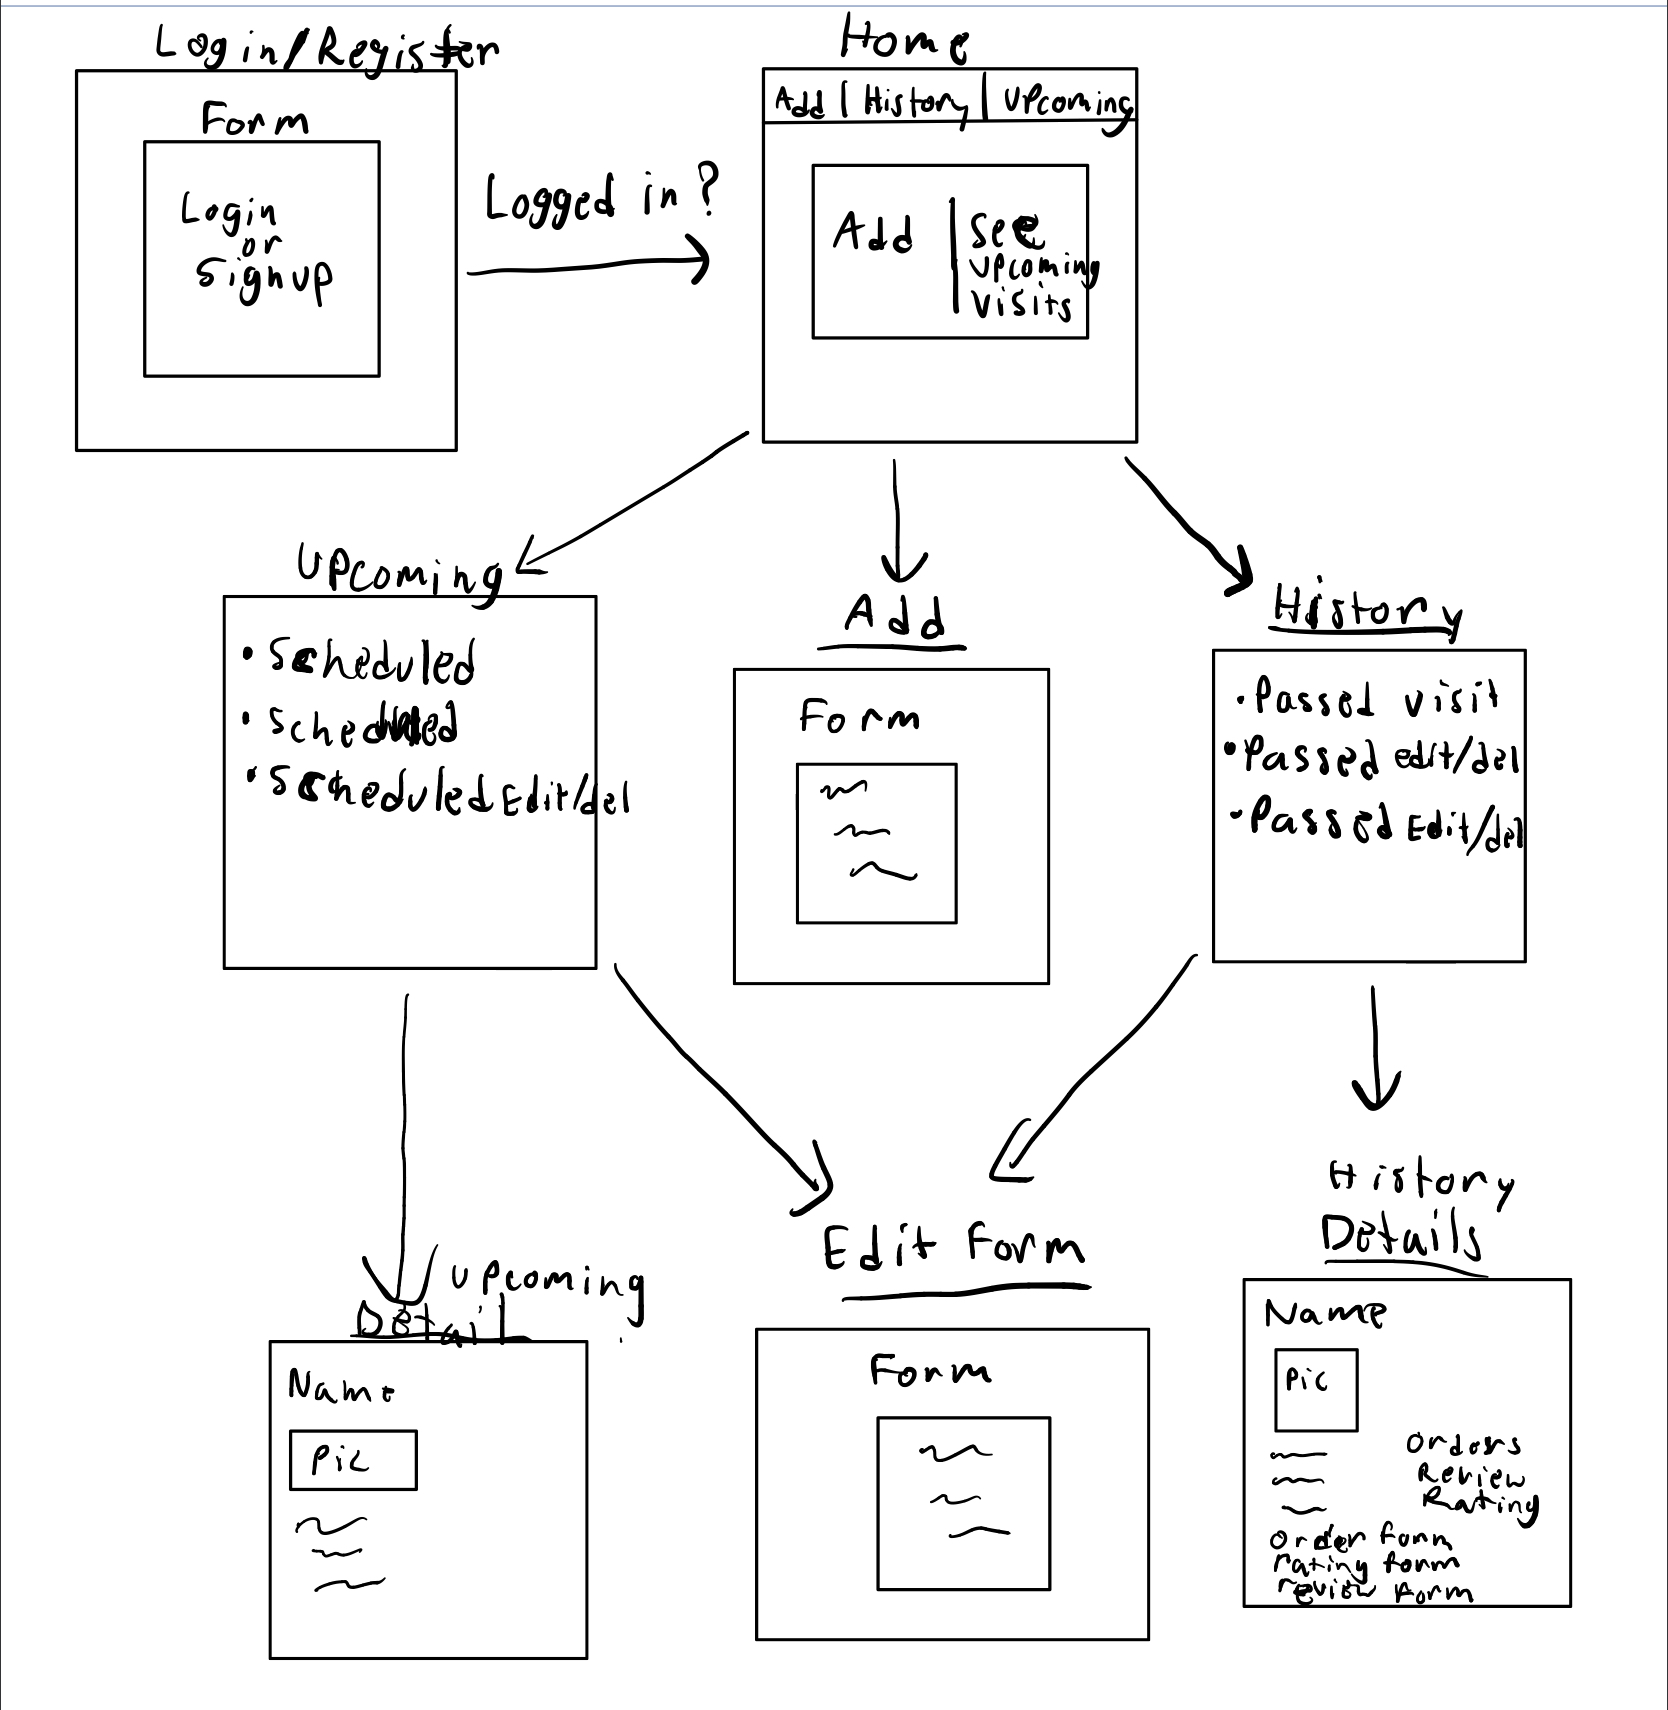 Login/Register
Form
Login
or
Signup
Logged in?
Home
Add | History | Upcoming
Add | See
Upcoming
Visits
Upcoming
• Scheduled
• Scheduled
• Scheduled Edit/del
Add
Form
History
• Passed visit
• Passed edit/del
• Passed Edit/del
Upcoming
Detail
Name
Pic
Edit Form
Form
History
Details
Name
Pic
Orders
Review
Rating
Order form
rating form
review form